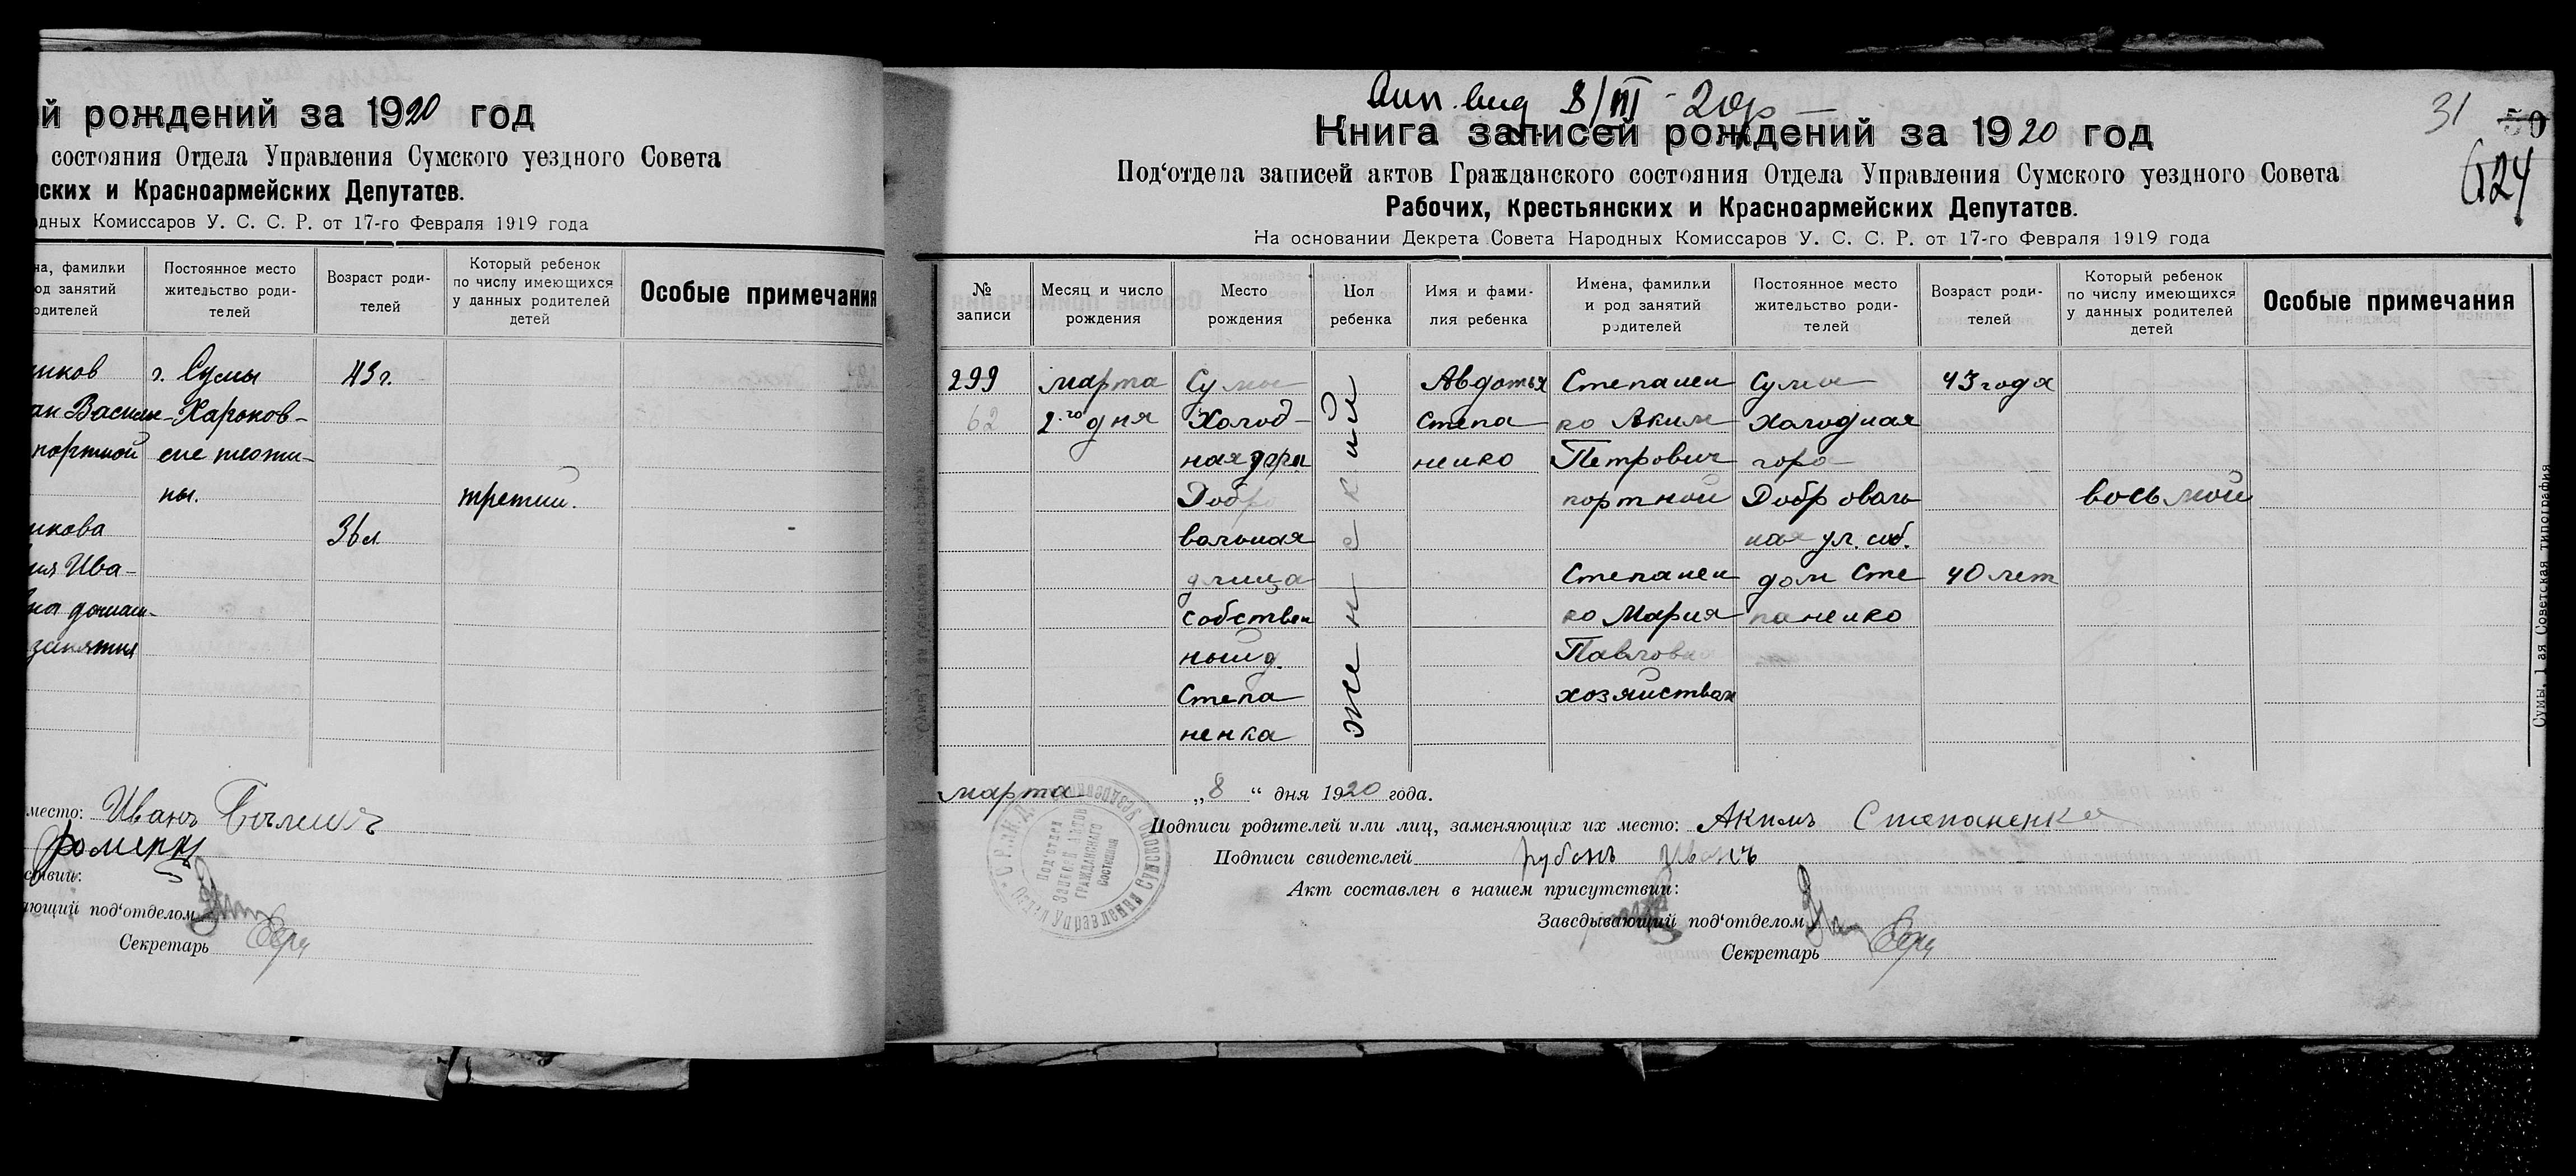 й рождений за 1920 год
состояния Отдела Управления Сумского уездного Совета
нских и Красноармейских Депутатов.
одных Комиссаров У. С. С. Р. от 17-го Февраля 1919 года
на, фамилии
од занятий
одителей
Постоянное место
жительство роди-
телей
Возраст роди-
телей
Который ребенок
по числу имеющихся
у данных родителей
детей
Особые примечания
г. Сумы
43 г.
ан Василь-
Харьков-
портной
ны.
третий.
36 л.
ия Ива-
занятия
место: Иванъ
Фоменко
ствии:
ающий под‘отделом
Секретарь
8/III - 20 р
31
50
624
Книга записей рождений за 1920 год
Под‘отдела записей актов Гражданского состояния Отдела Управления Сумского уездного Совета
Рабочих, Крестьянских и Красноармейских Депутатов.
На основании Декрета Совета Народных Комиссаров У. С. С. Р. от 17-го Февраля 1919 года
№
записи
Месяц и число
рождения
Место
рождения
Пол
ребенка
Имя и фами-
лия ребенка
Имена, фамилии
и род занятий
родителей
Постоянное место
жительство роди-
телей
Возраст роди-
телей
Который ребенок
по числу имеющихся
у данных родителей
детей
Особые примечания
299
62
марта
2-го дня
Сумы
Холод-
ная гора
Добро
вольная
улица
собствен
ный д.
Степа
ненка
женский
Авдотья
Степа
ненко
Степанен
ко Аким
Петрович
портной
Степанен
ко Мария
Павловна
хозяйствен
Сумы
Холодная
гора
Доброволь
ная ул. соб.
дом Сте
паненко
43 года
40 лет
восьмой
марта „8“ дня 1920 года.
Подписи родителей или лиц, заменяющих их место: Акимъ Степаненко
Подписи свидетелей рубанъ иванъ
Акт составлен в нашем присутствии:
Заведывающий под‘отделом
Секретарь
Под‘отдел
Записей актов
гражданского
состояния
Сумы, 1 ая Советская типография